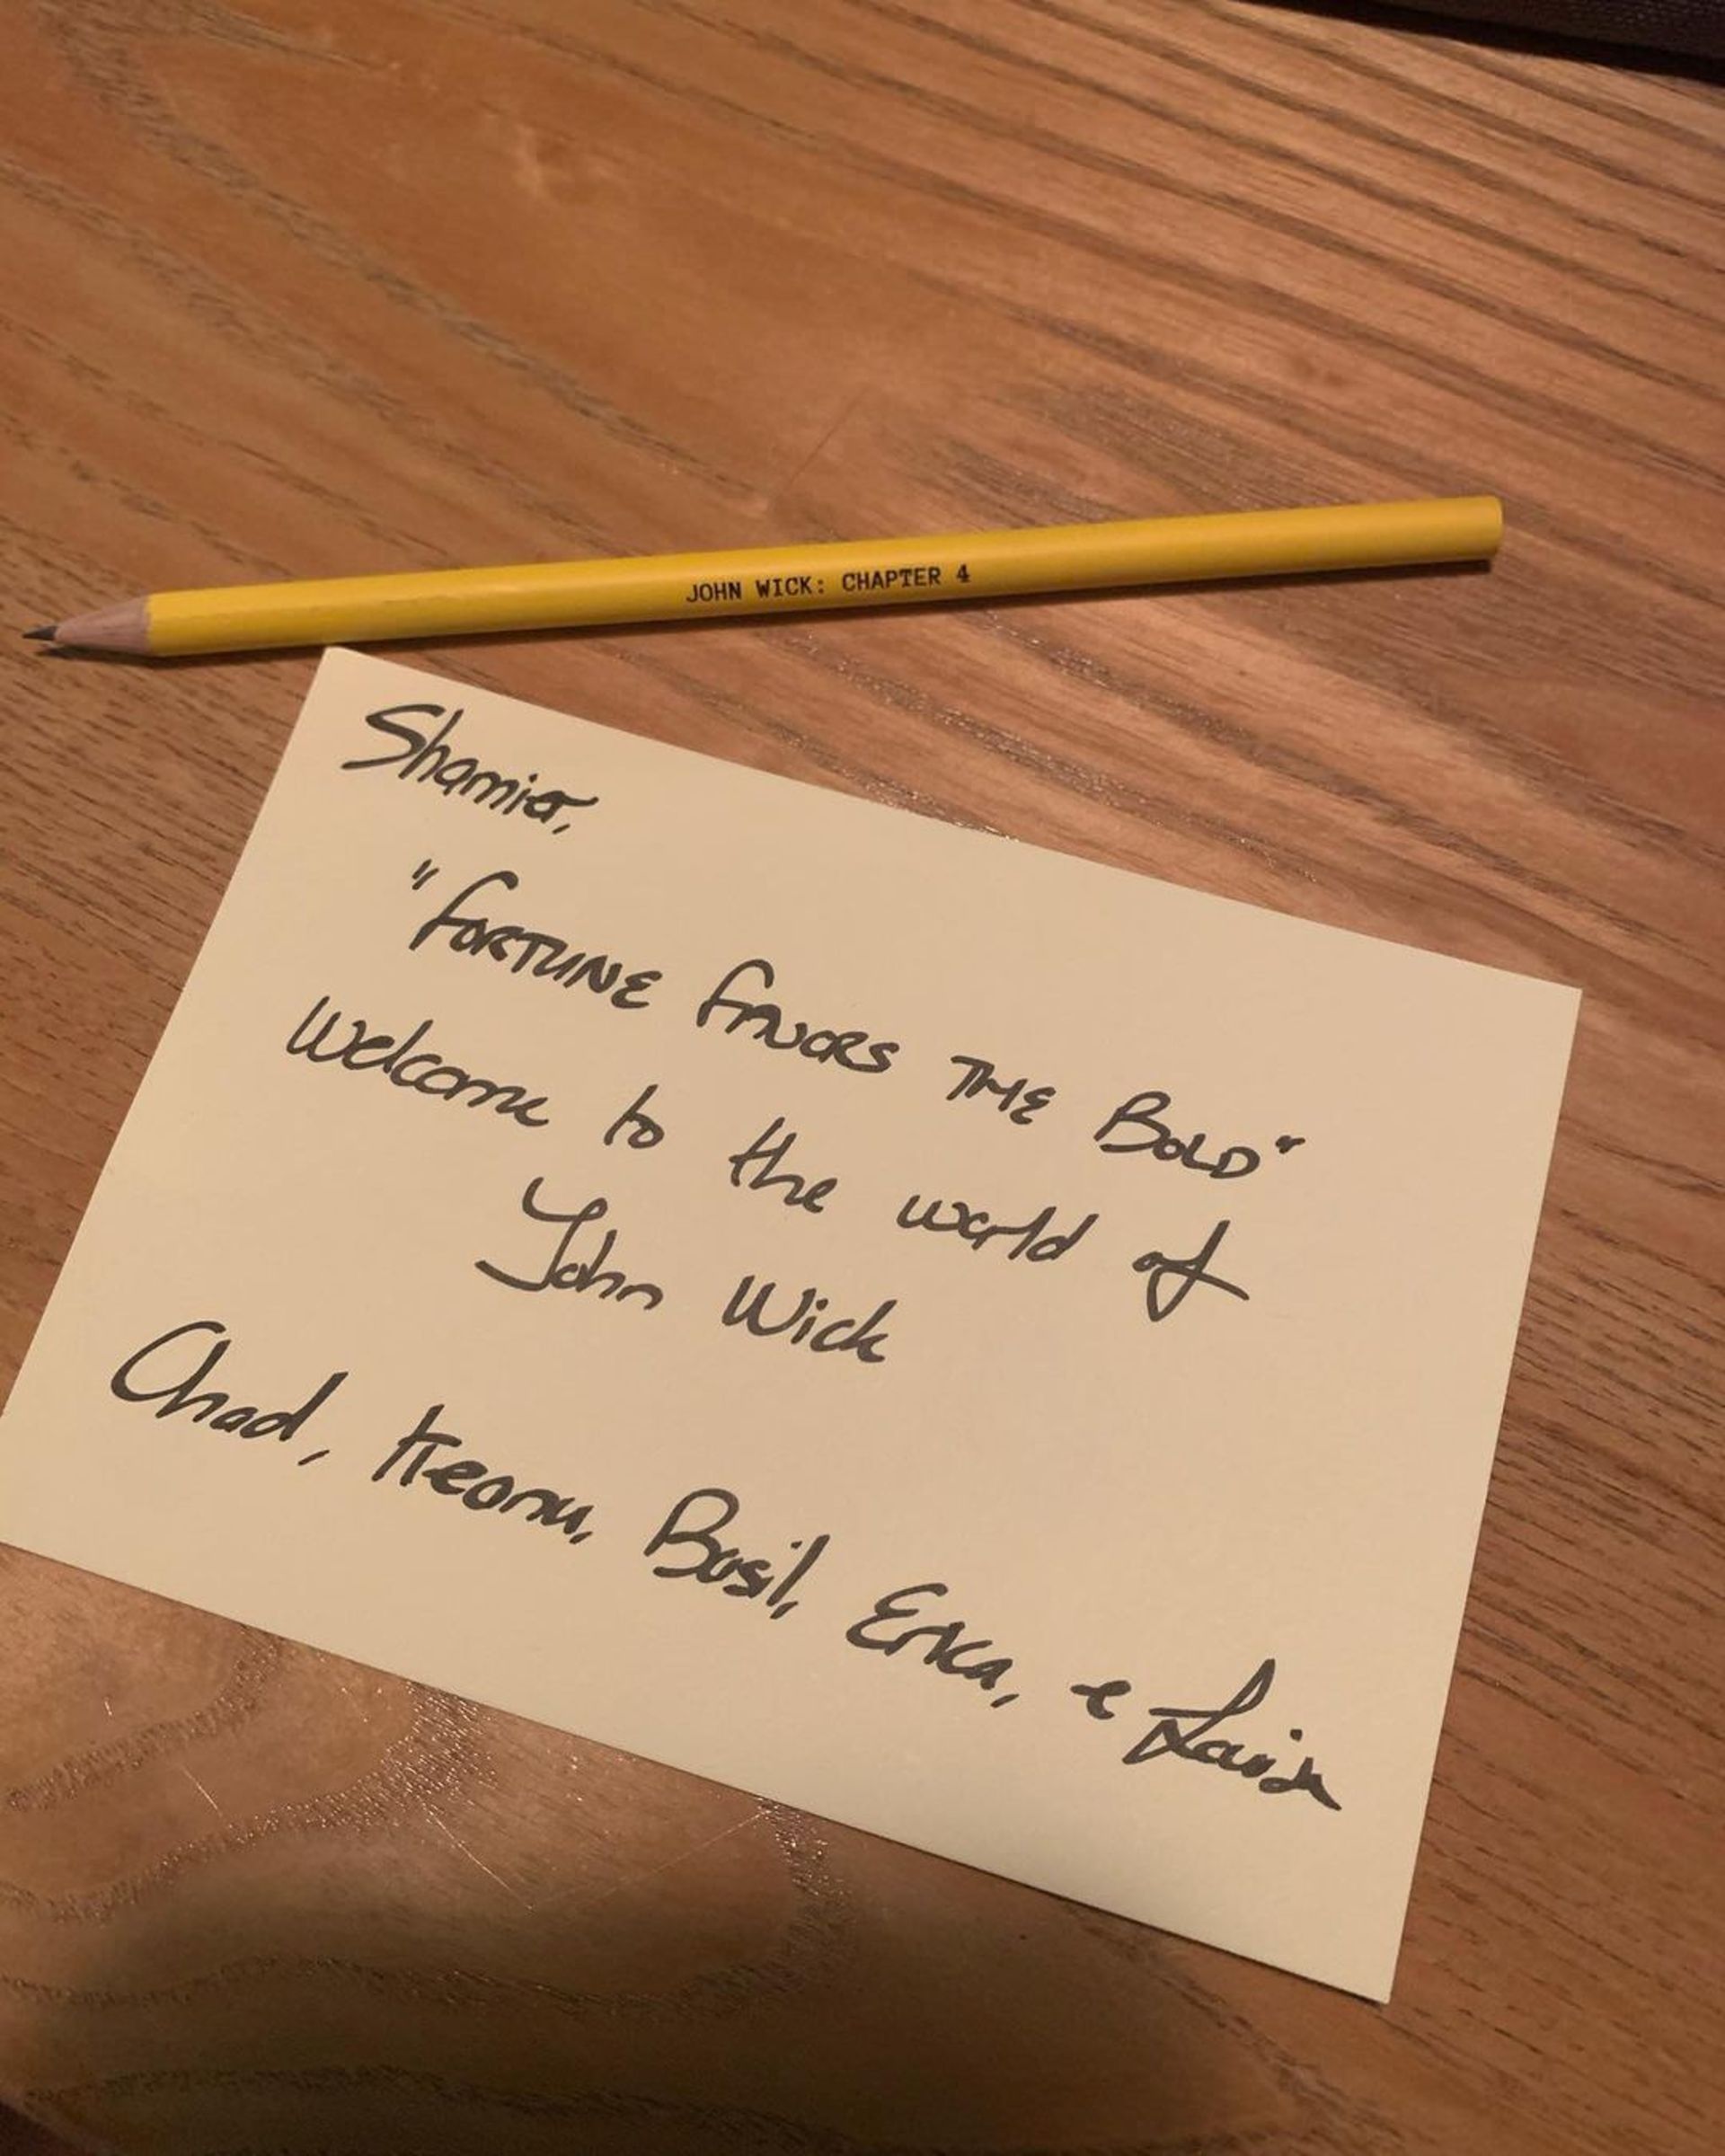 JOHN WICK: CHAPTER 4
Shamier,
"FORTUNE FAVORS THE BOLD"
Welcome to the world of
John Wick
Chad, Keanu, Basil, Erica, &